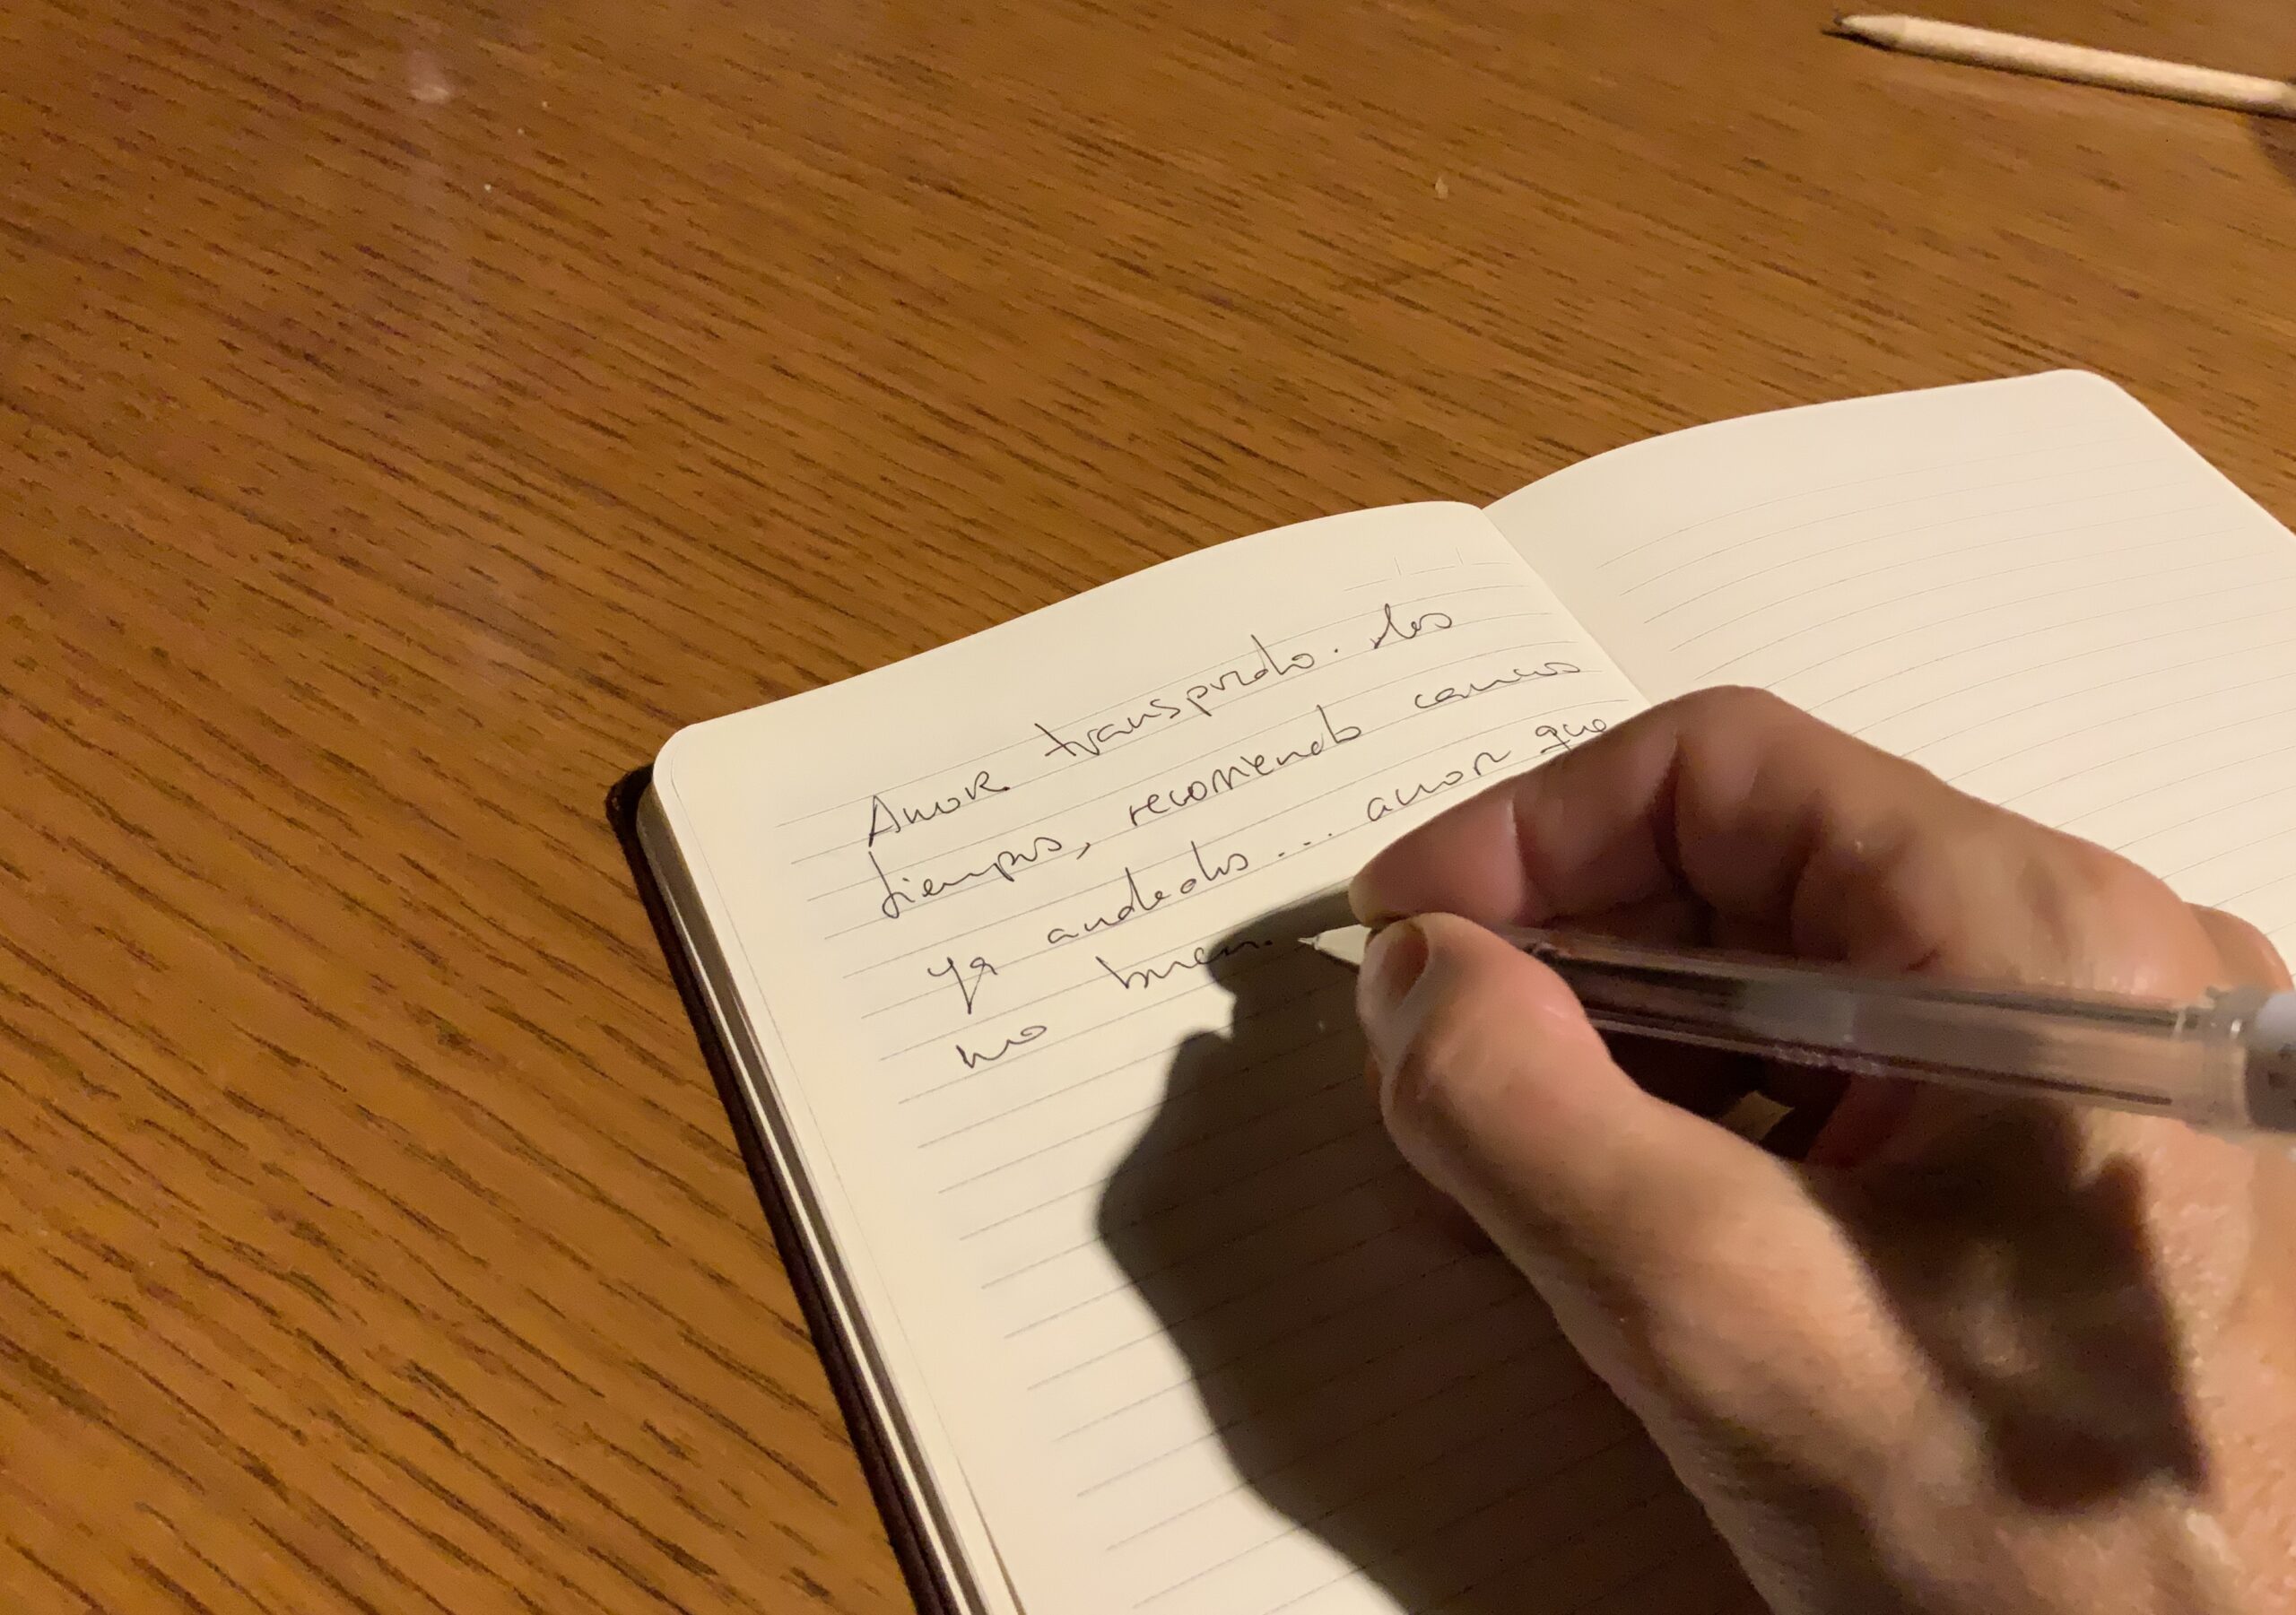 Amor transpirado. los
tiempos, recorriendo caminos
ya andados... amor que
no buen